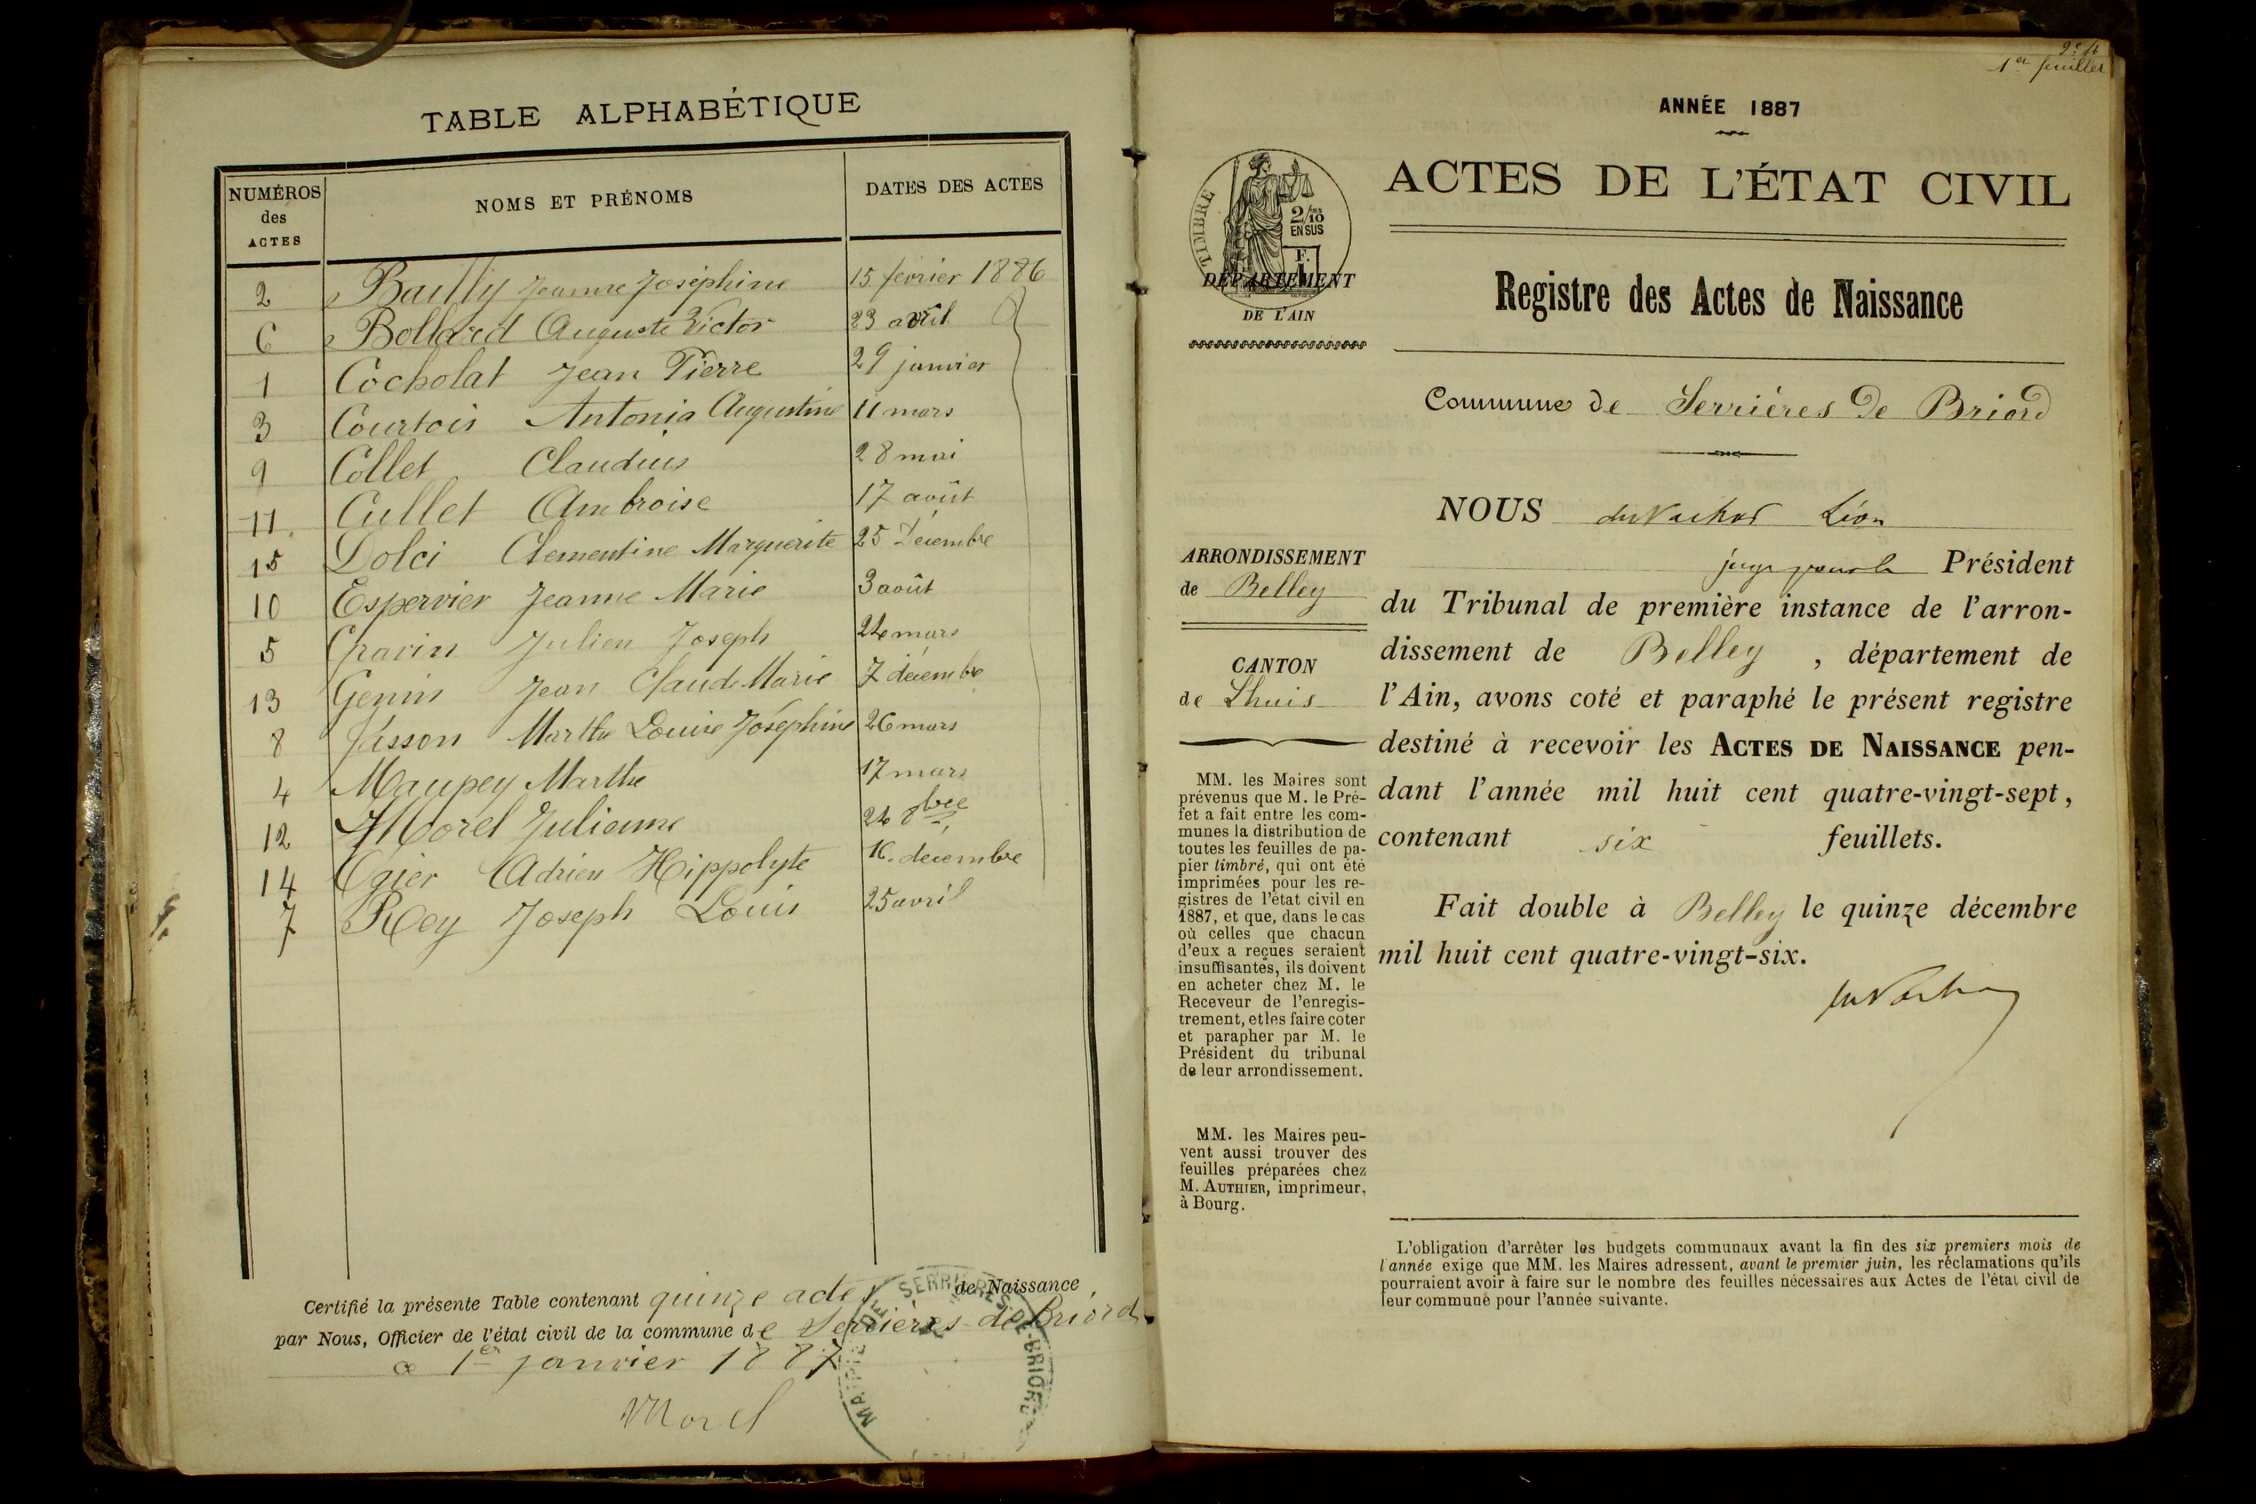 TABLE ALPHABÉTIQUE
NUMÉROS des ACTES NOMS ET PRÉNOMS DATES DES ACTES
2 Bailly Jeanne Joséphine 15 février 1886
6 Bollard Auguste Victor 23 avril
1 Cocholat Jean Pierre 29 janvier
3 Courtois Antonia Augustine 11 mars
9 Collet Claudius 28 mai
11 Cullet Ambroise 17 août
15 Dolci Clementine Marguerite 25 Décembre
10 Espervier Jeanne Marie 3 août
5 Gravin Julien Joseph 24 mars
13 Genin Jean Claude Marie 7 décembre
8 Jusson Marthe Louise Joséphine 26 mars
4 Maupey Marthe 17 mars
12 Morel Julienne 24 8bre
14 Ogier Adrien Hippolyte 16 décembre
7 Rey Joseph Louis 25 avril
Certifié la présente Table contenant quinze actes de Naissance
par Nous, Officier de l'état civil de la commune de Serrières-de-Briord
a 1er janvier 1887
Morel
MAIRIE DE SERRIÈRES-DE-BRIORD
1er feuillet
ANNÉE 1887
ACTES DE L'ÉTAT CIVIL
TIMBRE
2/10 EN SUS
1 F.
DÉPARTEMENT
DE L'AIN
Registre des Actes de Naissance
Commune de Serrières de Briord
NOUS Léon
juge pour le Président
du Tribunal de première instance de l'arron-
dissement de Belley, département de
l'Ain, avons coté et paraphé le présent registre
destiné à recevoir les ACTES DE NAISSANCE pen-
dant l'année mil huit cent quatre-vingt-sept,
contenant six feuillets.
Fait double à Belley le quinze décembre
mil huit cent quatre-vingt-six.
ARRONDISSEMENT
de Belley
CANTON
de Lhuis
MM. les Maires sont
prévenus que M. le Pré-
fet a fait entre les com-
munes la distribution de
toutes les feuilles de pa-
pier timbré, qui ont été
imprimées pour les re-
gistres de l'état civil en
1887, et que, dans le cas
où celles que chacun
d'eux a reçues seraient
insuffisantes, ils doivent
en acheter chez M. le
Receveur de l'enregis-
trement, et les faire coter
et parapher par M. le
Président du tribunal
de leur arrondissement.
MM. les Maires peu-
vent aussi trouver des
feuilles préparées chez
M. AUTHIER, imprimeur,
à Bourg.
L'obligation d'arrêter les budgets communaux avant la fin des six premiers mois de
l'année exige que MM. les Maires adressent, avant le premier juin, les réclamations qu'ils
pourraient avoir à faire sur le nombre des feuilles nécessaires aux Actes de l'état civil de
leur commune pour l'année suivante.